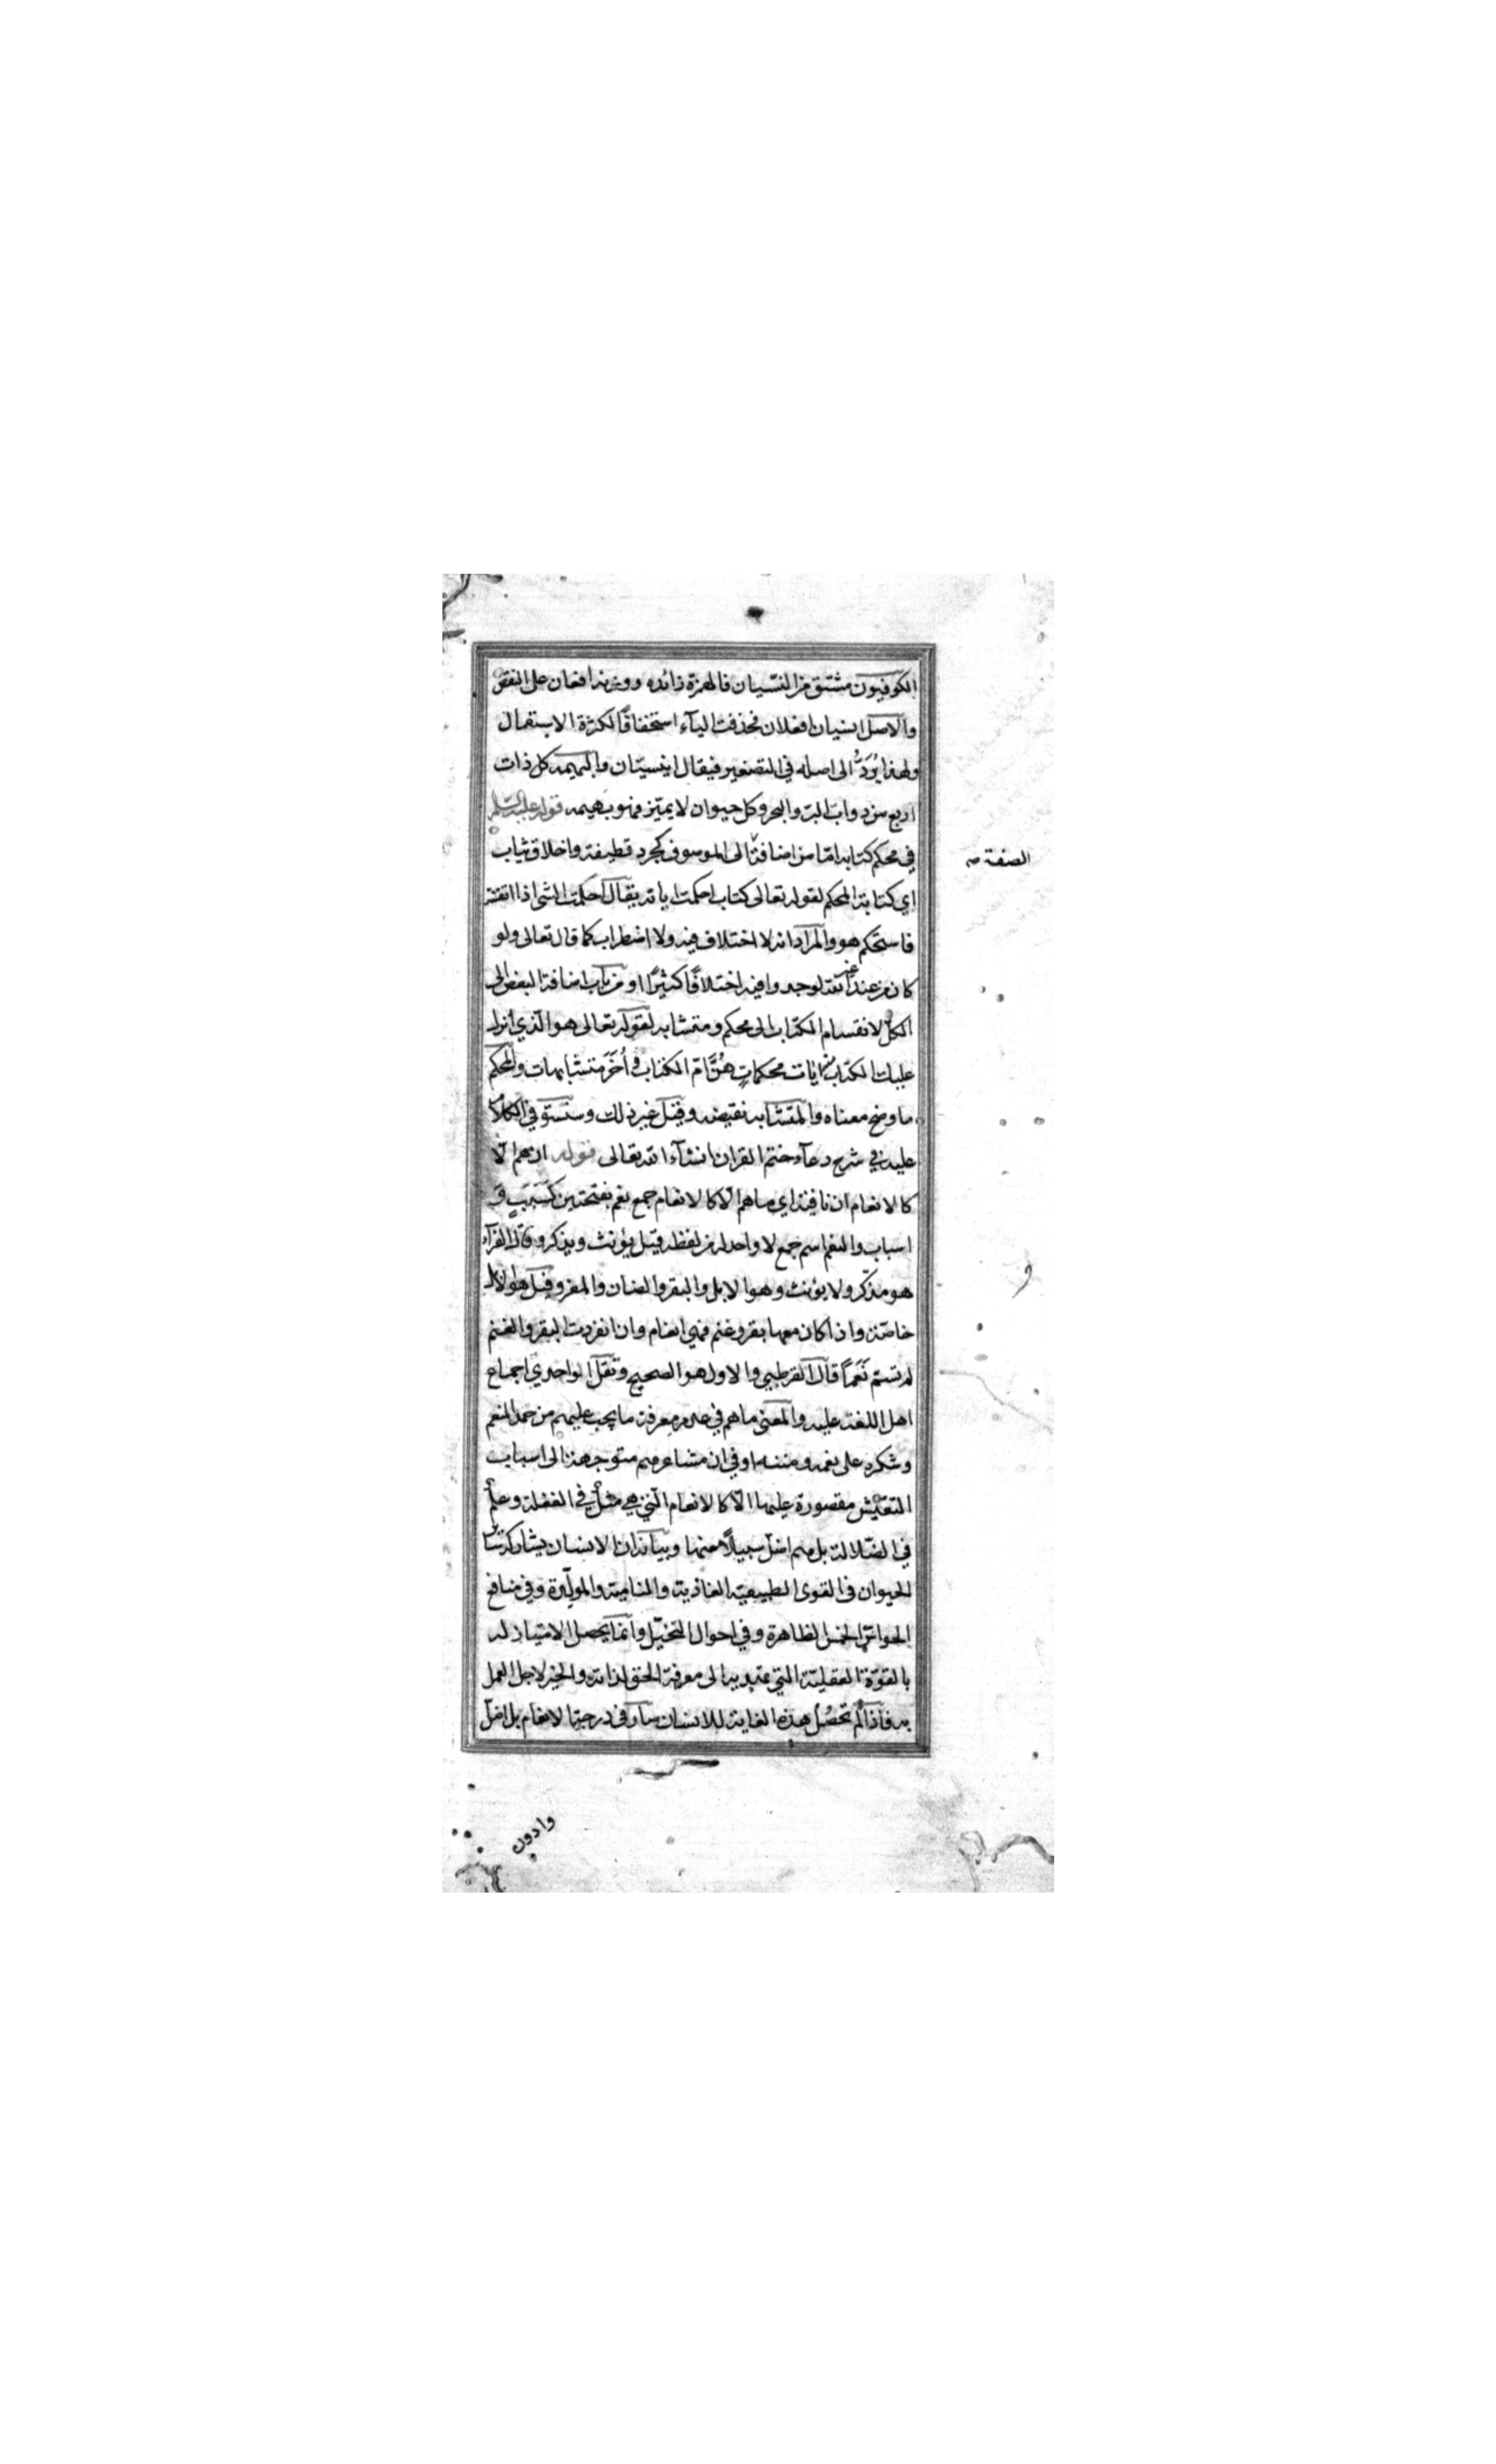 الكوفيون مشتق من النسيان فالهمزة زائده ووزنه افعان على النقص
والاصل انسيان افعلان فحذفت اليآء استخفافًا لكثرة الاستعمال
ولهذا يُرَدُّ الى اصله في التصغير فيقال انيسيّان والبهيمه كل ذات
اربع من دواب البرّ والبحر وكل حيوان لا يميّز فهو بهيمه قوله عليه السلم
في محكم كتابه امّا من اضافة الى الموصوف كجرد قطيفة واخلاق ثياب
الصفة صه
اي كتابة المحكم لقوله تعالى كتاب احكمت اياته يقال احكمت الشئ اذا اتقنته
فاستحكم هو والمراد انه لا اختلاف فيه ولا اضطراب كما قال تعالى ولو
كان من عند غير الله لوجدوا فيه اختلافًا كثيرًا او من باب اضافة البعض الى
الكلّ لانقسام الكتاب الى محكم ومتشابه لقوله تعالى هو الّذي انزل
عليك الكتاب منه ايات محكماتٍ هُنَّ امّ الكتاب و اُخَرَ متشابهات والمحكم
ما وضح معناه والمتشابه نقيضه وقيل غير ذلك وسنستوفي الكلام
عليه في شرح دعآء ختم القران انشآء الله تعالى قوله ان هم الّا
كالانعام ان نافية اي ما هم الّا كالانعام جمع نعم بفتحتين كسَبَبٍ و
اسباب والنعم اسم جمع لا واحد له من لفظه قيل يؤنث ويذكر وقال الفرآء
هو مذكّر ولا يؤنث وهو الابل والبقر والضان والمعز وقيل هو الابل
خاصّة واذا كان معها بقر وغنم فهي انعام وان انفردت البقر والغنم
لم تسم نَعَمًا قال القرطبي والاول هو الصحيح ونقل الواحدي اجماع
اهل اللغة عليه والمعنى ما هم في عدم معرفة ما يجب عليهم من حمد المنعم
وشكره على نعمه ومننه او في ان مشاعرهم متوجهة الى اسباب
التعيّش مقصورة عليها الّا كالانعام الّتي هي مثل في الغفلة وعلم
في الضّلالة بل هم اضل سبيلًا منها وبيانه ان الانسان يشارك سائر
الحيوان في القوى الطبيعيّه الغاذية والنامية والمولّدة وفي منافع
الحواسّ الخمس الظاهرة وفي احوال التخيّل وانما يحصل الامتياز له
بالقوّة العقليّة التي تهديه الى معرفة الحق لذاته والخير لاجل العمل
به فاذا لم تحصُل هذه الغاية للانسان صار في درجة الانعام بل اضلّ
وادون